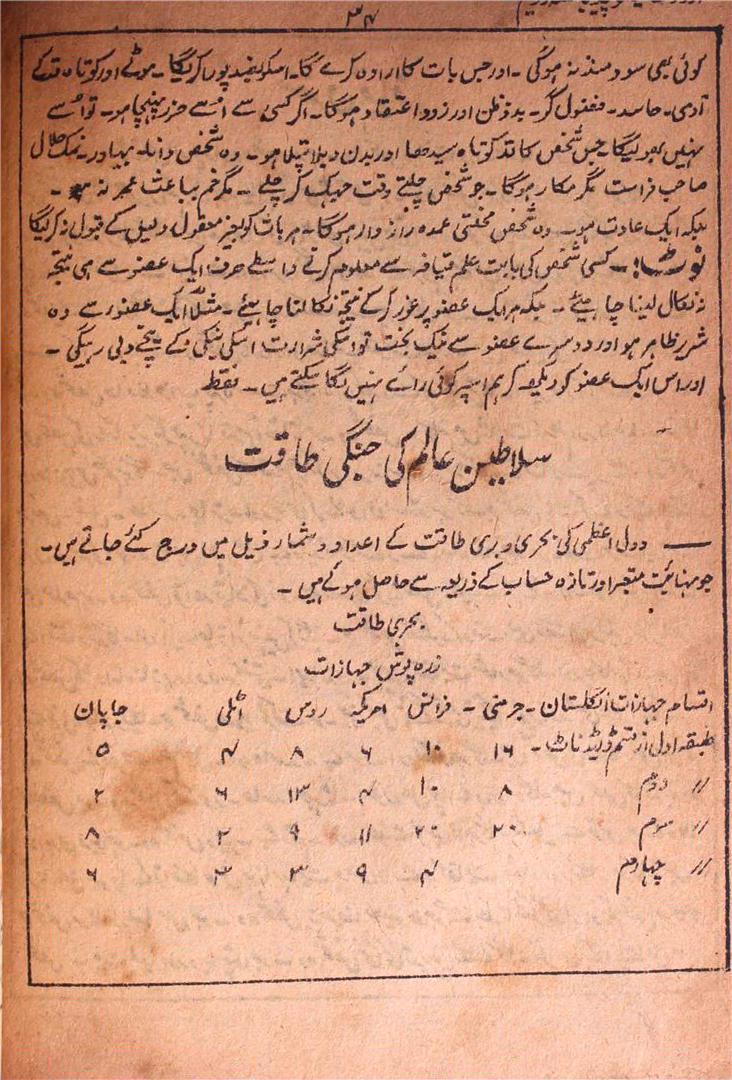 ۳۴
کوئی بھی سود مند نہ ہوگی ۔ اور جس بات کا ارادہ کرے گا۔ اسکو ضد پورا کریگا ۔ موٹے اور کوتاہ قد کے
آدمی ۔ حاسد ۔ فضول گر ۔ بدظن اور زود اعتقاد ہوگا۔ اگر کسی سے اسے ضرر پہنچا ہو ۔ تو اسے
نہیں بھولیگا ۔ جس شخص کا قد کوتاہ سیدھا اور بدن دبلا پتلا ہو ۔ وہ شخص دانا ۔ بہادر ۔ نمک حلال
صاحب فراست مگر مکار ہوگا ۔ جو شخص چلتے وقت جھک کر چلے ۔ مگر خم بباعث عمر نہ ہو ۔
بلکہ ایک عادت ہو ۔ وہ شخص محنتی عمدہ راز دار ہوگا ۔ ہر بات کو بغیر معقول دلیل کے قبول نہ کریگا
نوٹ :۔ کسی شخص کی بابت علم قیافہ سے معلوم کرنے واسطے صرف ایک عضو سے ہی نتیجہ
نہ نکال لینا چاہیئے ۔ بلکہ ہر ایک عضو پر غور کر کے نتیجہ نکالنا چاہیئے ۔ مثلاً ایک عضو سے وہ
شریر ظاہر ہو اور دوسرے عضو سے نیک بخت تو اسکی شرارت اسکی نیکی کے نیچے دبی رہیگی ۔
اور اس ایک عضو کو دیکھ کر ہم اسپر کوئی رائے نہیں لگا سکتے ہیں ۔ فقط
سلاطین عالم کی جنگی طاقت
— دول اعظمی کی بحری و بری طاقت کے اعداد و شمار ذیل میں درج کئے جاتے ہیں ۔
جو نہایت معتبر اور تازہ حساب کے ذریعہ سے حاصل ہوئے ہیں ۔
بحری طاقت
زرہ پوش جہازات
اقسام جہازات انگلستان ۔ جرمنی ۔ فرانس امریکہ روس اٹلی جاپان
طبقہ اول از قسم ڈریڈناٹ ۔ ۱۶ ۱۰ ۶ ۸ ۴ ۵
〃 دوم ۸ ۱۰ ۴ ۱۳ ۶ ۲
〃 سوم ۲۰ ۲۰ ۱۱ ۹ ۲ ۸
〃 چہارم ۴ ۹ ۳ ۳ ۶